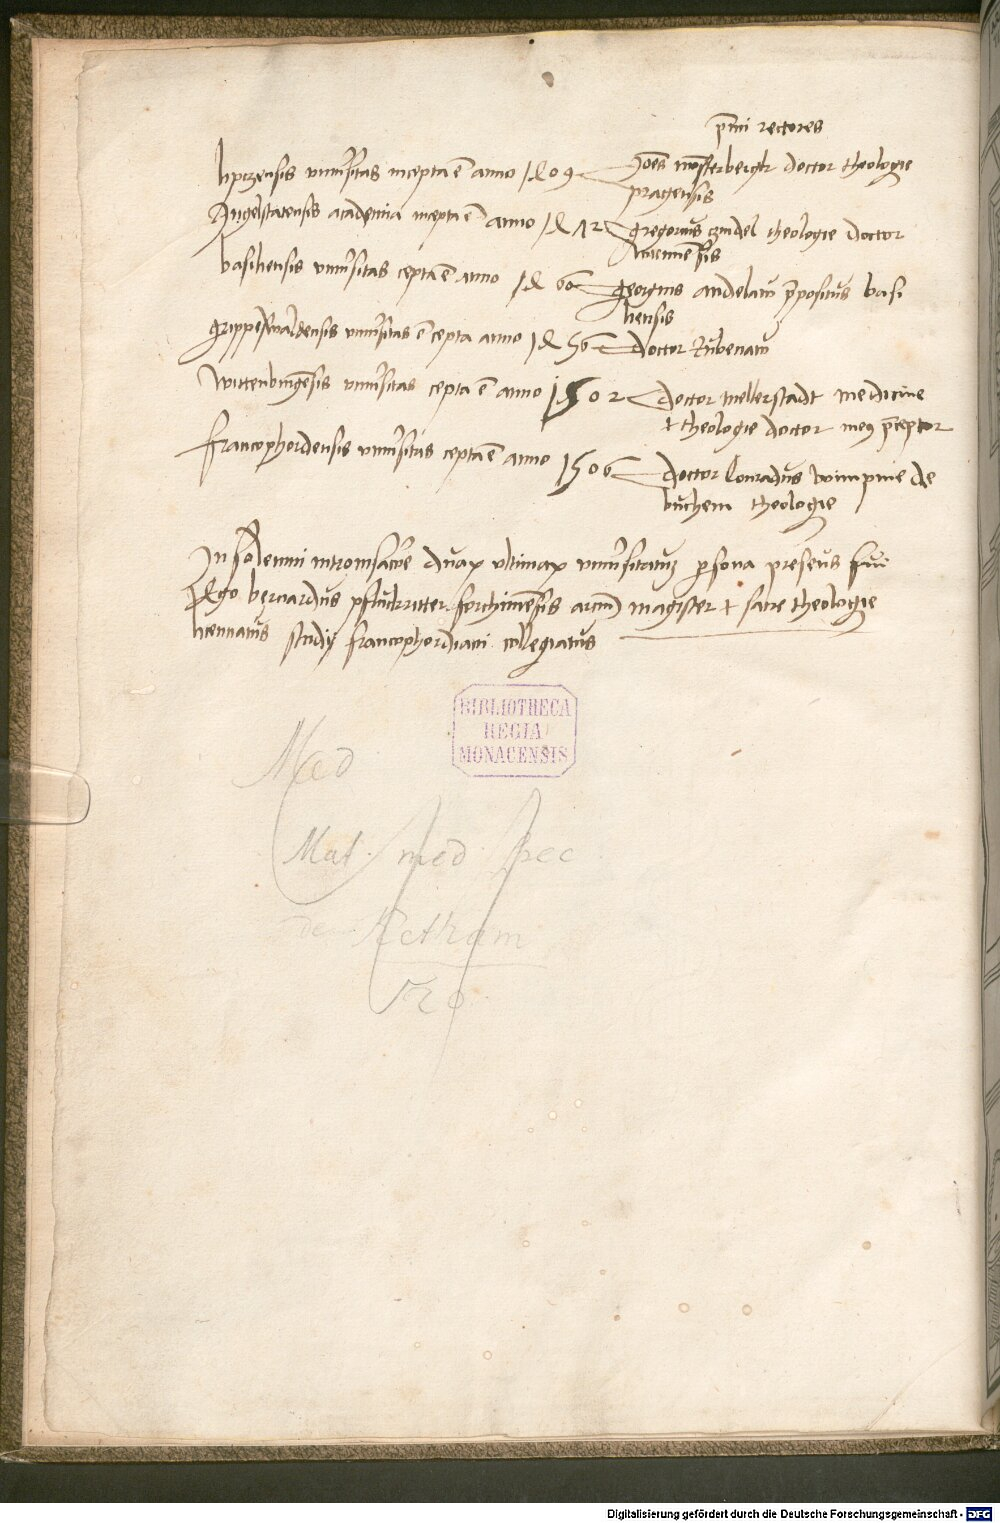 p̄mi rectores
lipczensis vniūsitas incepta ē anno 1409 Joēs mōsterbergk doctor theologie
pragensis
Angelstatensis academia incepta ē anno 1472 gregorius czindel theologie doctor
basiliensis vniūsitas cepta ē anno 1460 georgius andelaw p̄positus basi
liensis
grippeswaldensis vniūsitas ē cepta anno 1456 doctor Rubenaw
wittenburgēsis vniūsitas cepta ē anno 1502 doctor mellerstadt medicine
et theologie doctor meus p̄ceptor
francophordensis vniūsitas cepta ē anno 1506 doctor Conradus wimpine de
buchem theologie
In solemni duaꝝ vltimaꝝ vniūsitatuꝫ psona presens fui
Ego bernardus pfluckritter forchimēsis arciū magister et sacre theologie
licenciatus studij francophordiani collegiatus
BIBLIOTHECA
REGIA
MONACENSIS
Med
Mat. med. spec
de Ketham
Digitalisierung gefördert durch die Deutsche Forschungsgemeinschaft - DFG